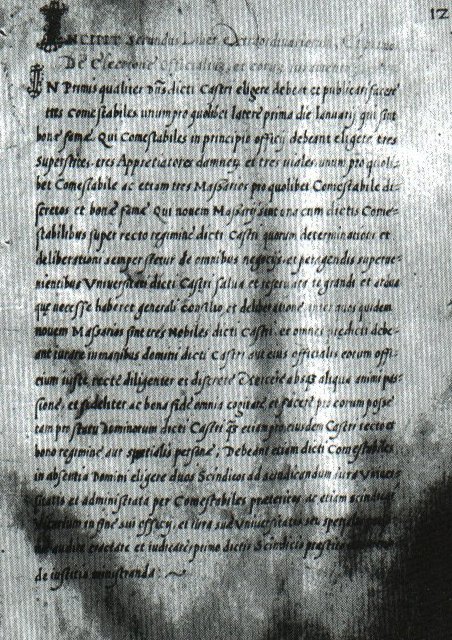 12
INCIPIT Secundus Liber Extraordinariorum, et
De Electione officialium, et eorum
IN Primis qualiter Dñs dicti Castri eligere debeat et publicari facere
tres Comestabiles unum pro quolibet latere prima die Ianuarij qui sint
bone fame. Qui Comestabiles in principio officij debeant eligere tres
superstites, tres Appretiatores damney et tres viales, unum pro quoli=
bet Comestabile ac etiam tres Massarios pro quolibet Comestabile di=
scretos et bone fame Qui novem Massarij sint una cum dictis Come=
stabilibus super recto regimine dicti Castri quorum determinationi et
deliberationi semper stetur de omnibus negocijs et peragendis superve=
nientibus Universitati dicti Castri salva et reservare re grandi et ardua
que necesse haberet generali Consilio et deliberatione inter quos quidem
novem Massarios sint tres Nobiles dicti Castri, et omnes predicti debe=
ant iurare in manibus domini dicti Castri aut eius officialis eorum offi=
cium iuste, recte diligenter et discrete Exercere absq3 aliqua animi pas=
sione, et fideliter ac bona fide omnia cogitare et facere pro eorum posse
tam pro statu Dominorum dicti Castri q3 etiam pro eiusdem Castri recto et
bono regimine aut spetialis persone; Debeant etiam dicti Comestabiles
in absentia Domini eligere duos Scindicos ad scindicandum iura Univer=
sitatis et administrata per Comestabiles preteritos, ac etiam scindicare
Vicarium in fine sui officij, et iura sue Universitatis seu
audire tractare et iudicare primo dictis Scindicis prestito
de iustitia ministranda